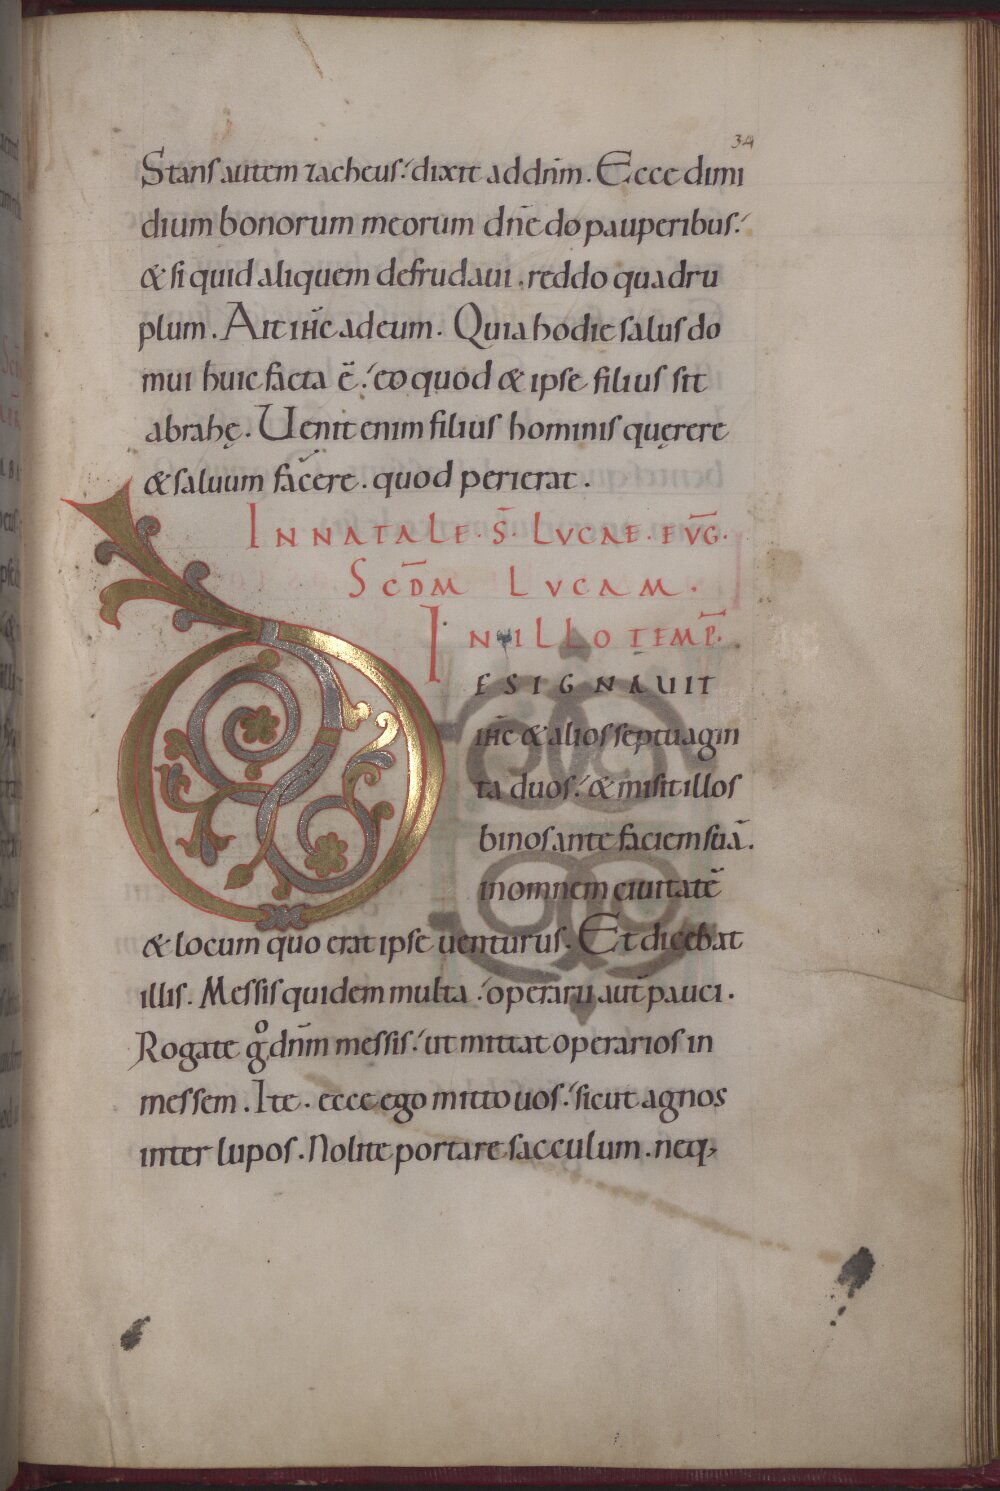 34
Stans autem zacheus. dixit ad dn̄m. Ecce dimi
dium bonorum meorum dn̄e do pauperibus.
& si quid aliquem defrudaui. reddo quadru
plum. Ait ih̄c ad eum. Quia hodie salus do
mui huic facta ē. eo quod & ipse filius sit
abrahę. Uenit enim filius hominis quęrere
& saluum facere. quod perierat.
IN NATALE. S̄. LVCAE. EVḠ.
SCD̄M LVCAM.
IN ILLO TEMP̄.
DESIGNAUIT
ih̄c & alios septuagin
ta duos. & misit illos
binos ante faciem suā.
in omnem ciuitatē
& locum quo erat ipse uenturus. Et dicebat
illis. Messis quidem multa. operarii aut̄ pauci.
Rogate gͦ dn̄m messis. ut mittat operarios in
messem. Ite. ecce ego mitto uos. sicut agnos
inter lupos. Nolite portare sacculum. neq;